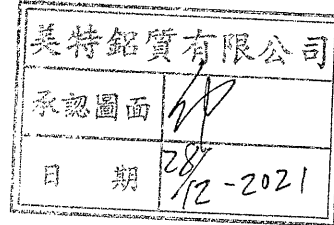 美特鋁質有限公司
承認圖面
日 期 28/12-2021